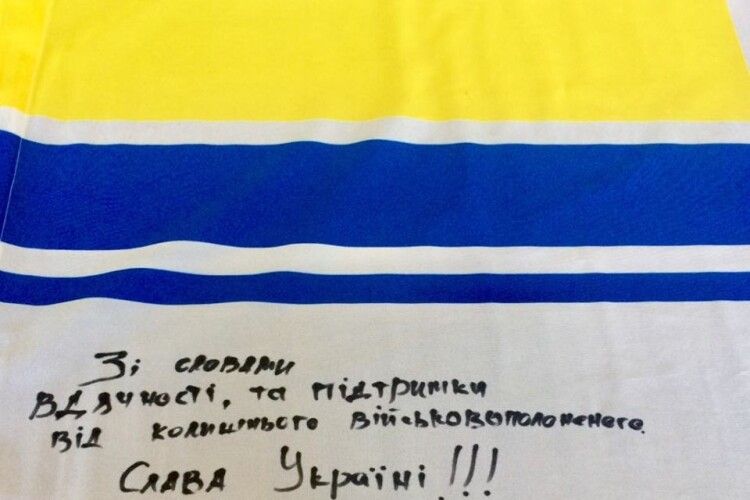 Зі словами
вдячності, та підтримки
від колишнього військовополоненего.
Слава Україні!!!